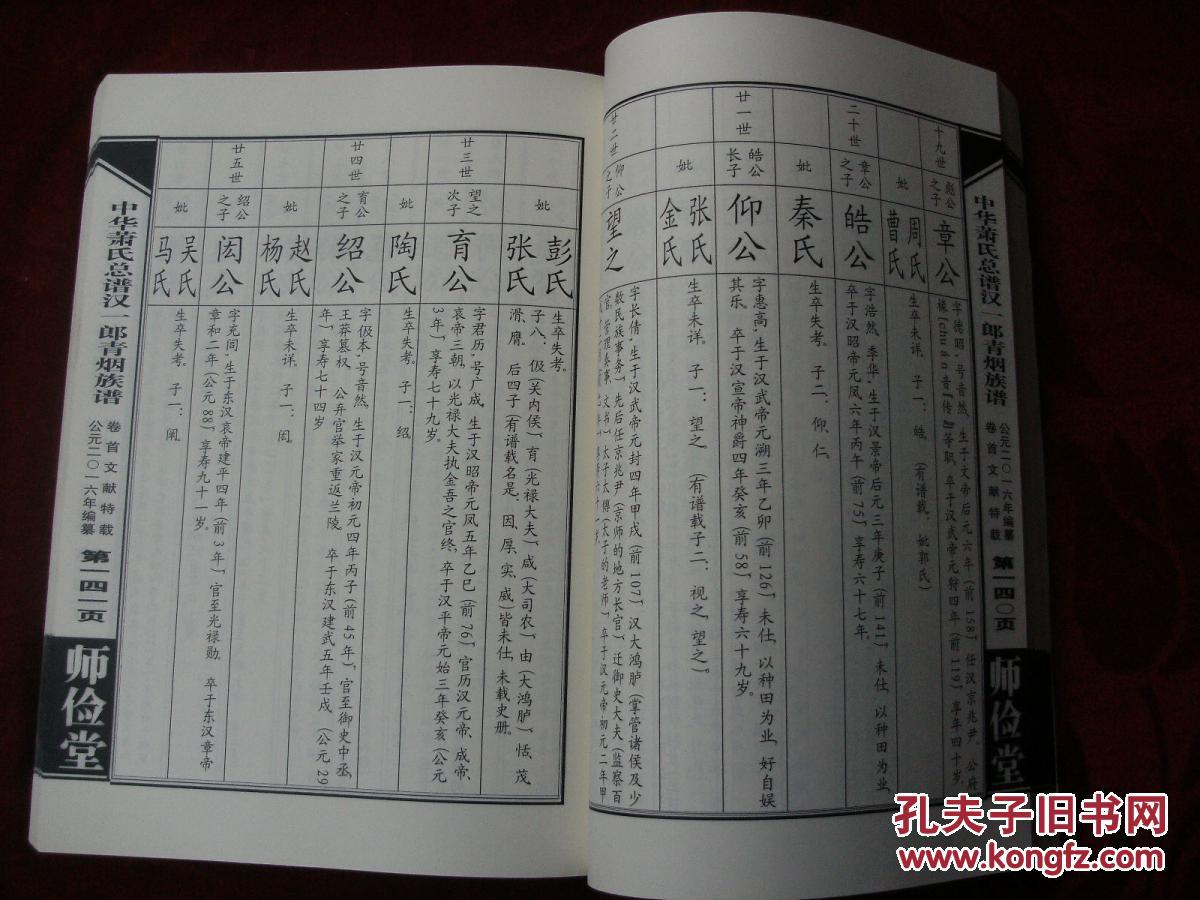 中华萧氏总谱汉一郎青烟族谱
公元二〇一六年编纂
卷首文献特载
第一四〇页
师俭堂
十九世
彪公之子
章公
字德昭，号音然，生于文帝后元六年（前158），任汉京兆尹、公府
掾【chuàn音『传』】等职，卒于汉武帝元狩四年（前119），享年四十岁。
妣
周氏
曹氏
生卒未详。子一：皓。（有谱载：妣郭氏）
二十世
章公之子
皓公
字浩然，李华，生于汉景帝后元三年庚子（前141），未仕，以种田为业，
卒于汉昭帝元凤六年丙午（前75），享寿六十七年。
妣
秦氏
生卒失考。子二：仰、仁。
廿一世
皓公长子
仰公
字惠高，生于汉武帝元溯三年乙卯（前126），未仕，以种田为业，好自娱
其乐。卒于汉宣帝神爵四年癸亥（前58），享寿六十九岁。
妣
张氏
金氏
生卒未详。子一：望之。（有谱载子二：视之、望之）。
廿二世
仰公之子
望之
字长倩，生于汉武帝元封四年甲戌（前107），汉大鸿胪（掌管诸侯及少
数民族事务），先后任京兆尹（京师的地方长官）、迁御史大夫（监察百
官，管理奏事、文书）、太子太傅（太子的老师），卒于汉元帝初元二年甲
妣
彭氏
张氏
生卒失考。
子八：伋（关内侯）、育（光禄大夫）、咸（大司农）、由（大鸿胪）、恬、茂、
滑、鹰。后四子（有谱载名是：因、厚、实、威）皆未仕，未载史册。
廿三世
望之次子
育公
字君历，号广成，生于汉昭帝元凤五年乙巳（前76），官历汉元帝、成帝、
哀帝三朝，以光禄大夫执金吾之官终，卒于汉平帝元始三年癸亥（公元
3年），享寿七十九岁。
妣
陶氏
生卒失考。子一：绍。
廿四世
育公之子
绍公
字伋本，号音然，生于汉元帝初元四年丙子（前45年），官至御史中丞，
王莽篡权，公弃官举家重返兰陵，卒于东汉建武五年壬戌（公元29
年），享寿七十四岁
妣
赵氏
杨氏
生卒未详。子一：闳。
廿五世
绍公之子
闳公
字充闾，生于东汉哀帝建平四年（前3年），官至光禄勋，卒于东汉章帝
章和二年（公元88），享寿九十一岁。
妣
吴氏
马氏
生卒失考。子一：阐。
中华萧氏总谱汉一郎青烟族谱
卷首文献特载
公元二〇一六年编纂
第一四一页
师俭堂
孔夫子旧书网
www.kongfz.com